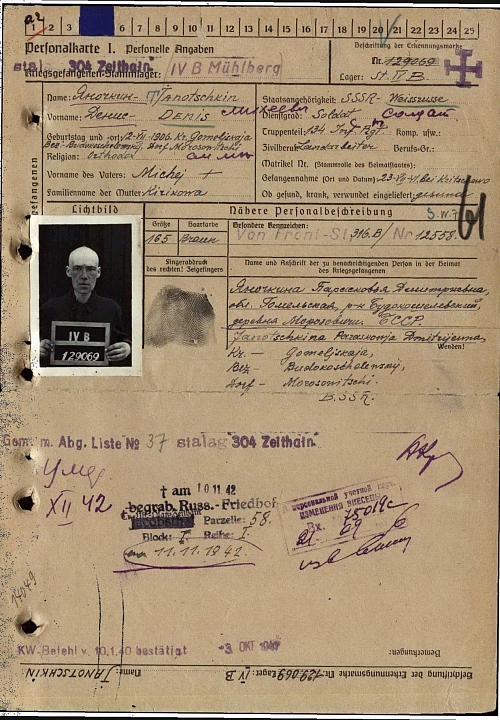 2 3 6 7 8 9 10 11 12 13 14 15 16 17 18 19 20 21 22 23 24 25
Personalkarte I. Personelle Angaben
Beschriftung der Erkennungsmarke
stalag 304 Zeithain.
Nr. 129069
Kriegsgefangenen-Stammlager: IV B Mühlberg
Lager: St. IV B
Name: Яночкин - Janotschkin
Staatsangehörigkeit: SSSR - Weissrusse
Vorname: Денис - DENIS Михеевич
Dienstgrad: Soldat Солдат
Geburtstag und -ort: 12.VII.1906. Kr. Gomeljskaja
Truppenteil: 434 Inf. Rgt. Komp. usw.:
Zivilberuf: Landarbeiter Berufs-Gr.:
Religion: Orthodox
Matrikel Nr. (Stammrolle des Heimatstaates):
Vorname des Vaters: Michej +
Gefangennahme (Ort und Datum):
Familienname der Mutter:
Ob gesund, krank, verwundet eingeliefert: gesund
Lichtbild
Nähere Personalbeschreibung
Größe
Haarfarbe
Besondere Kennzeichen:
165
Braun
Von Front-St. 316.B/ Nr. 12558.
Fingerabdruck
des rechten! Zeigefingers
Name und Anschrift der zu benachrichtigenden Person in der Heimat
des Kriegsgefangenen
Яночкина Дмитриевна
обл. Гомельская, р-н Будокошелевский,
деревня Морозовичи БССР.
Janotschkina Paraskowja Dmitrijewna
Wenden!
Kr. - Gomeljskaja,
Bez - Budokoschelewskij,
Dorf - Morosowitschi
B.S.S.R.
IV B
129069
Gem. m. Abg. Liste № 37 stalag 304 Zeithain.
Умер
XII 42
† am 10 11. 42
begrab. Russ.-Friedhof
Parzelle: 58.
Block: I Reihe: I.
11.11.1942.
ИЗМЕНЕНИЯ ВНЕСЕНЫ
Вх. 75019с
KW-Befehl v. 10.1.40 bestätigt
-3 ОКТ 1947
Bemerkungen:
Beschriftung der Erkennungsmarke Nr. 129069 Lager: IV B
JANOTSCHKIN